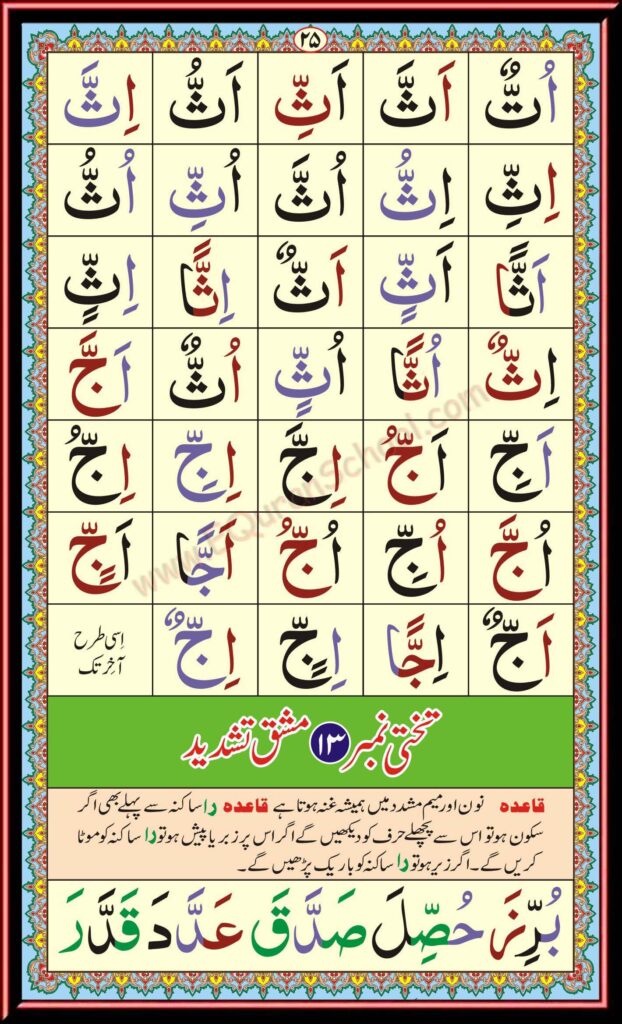 ۲۵
اُتٌّ اَثَّ اَثِّ اَثُّ اِثَّ
اِثِّ اِثُّ اُثَّ اُثِّ اُثُّ
اَثًّا اَثٍّ اَثٌّ اِثًّا اِثٍّ
اِثٌّ اُثًّا اُثٍّ اُثٌّ اَجَّ
اَجِّ اَجُّ اِجَّ اِجِّ اِجُّ
اُجَّ اُجِّ اُجُّ اَجًّا اَجٍّ
اَجٌّ اِجًّا اِجٍّ اِجٌّ اِسی طرح
آخِر تک
تختی نمبر ۱۳ مشق تشدید
قاعدہ نون اور میم مشدد میں ہمیشہ غنہ ہوتا ہے قاعدہ را ساکنہ سے پہلے بھی اگر
سکون ہو تو اس سے پچھلے حرف کو دیکھیں گے اگر اس پر زبر یا پیش ہو تو را ساکنہ کو موٹا
کریں گے۔ اگر زیر ہو تو را ساکنہ کو باریک پڑھیں گے۔
بُرِّزَ حُصِّلَ صَدَّقَ عَدَّدَ قَدَّرَ
www.eQuranSchool.com